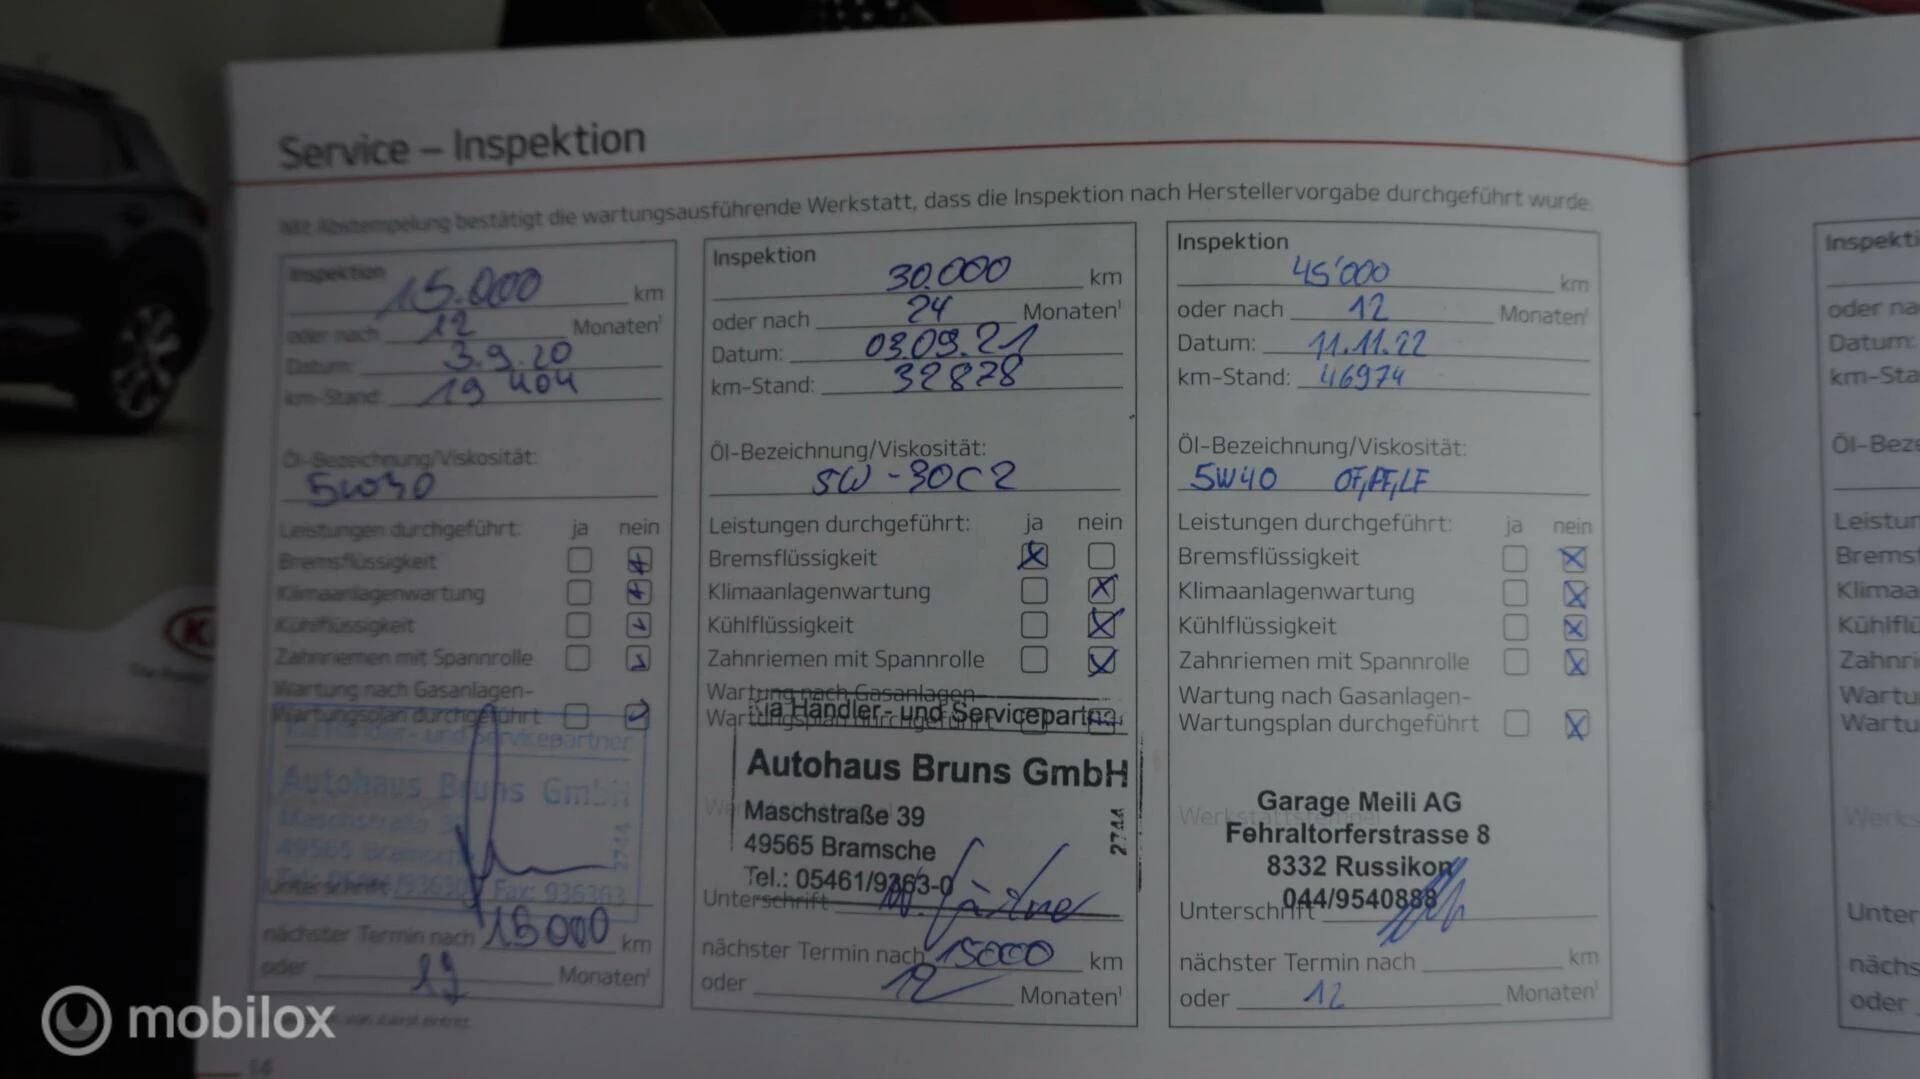 Service – Inspektion
Mit Abstempelung bestätigt die wartungsausführende Werkstatt, dass die Inspektion nach Herstellervorgabe durchgeführt wurde.
Inspektion
15.000 km
oder nach 12 Monaten¹
Datum: 3.9.20
km-Stand: 19 404
Öl-Bezeichnung/Viskosität:
5W30
Leistungen durchgeführt: ja nein
Bremsflüssigkeit
Klimaanlagenwartung
Kühlflüssigkeit
Zahnriemen mit Spannrolle
Wartung nach Gasanlagen-
Wartungsplan durchgeführt
Kia Händler- und Servicepartner
Autohaus Bruns GmbH
Maschstraße 39
49565 Bramsche
2744
Fax: 936363
Unterschrift
nächster Termin nach 15000 km
oder Monaten¹
Inspektion
30.000 km
oder nach 24 Monaten¹
Datum: 03.09.21
km-Stand: 32878
Öl-Bezeichnung/Viskosität:
5W-30C2
Leistungen durchgeführt: ja nein
Bremsflüssigkeit
Klimaanlagenwartung
Kühlflüssigkeit
Zahnriemen mit Spannrolle
Wartung nach Gasanlagen-
Wartungsplan durchgeführt
Kia Händler- und Servicepartner
Autohaus Bruns GmbH
Maschstraße 39
49565 Bramsche
2744
Tel.: 05461/9363-0
Unterschrift
nächster Termin nach 15000 km
oder 12 Monaten¹
Inspektion
45'000 km
oder nach 12 Monaten¹
Datum: 11.11.22
km-Stand: 46974
Öl-Bezeichnung/Viskosität:
5W40 OF,PF,LF
Leistungen durchgeführt: ja nein
Bremsflüssigkeit
Klimaanlagenwartung
Kühlflüssigkeit
Zahnriemen mit Spannrolle
Wartung nach Gasanlagen-
Wartungsplan durchgeführt
Werkstattstempel
Garage Meili AG
Fehraltorferstrasse 8
8332 Russikon
044/9540888
Unterschrift
nächster Termin nach km
oder 12 Monaten¹
Inspekti
oder na
Datum:
km-Sta
Öl-Beze
Leistur
Bremsf
Klimaa
Kühlflü
Zahnri
Wartu
Wartu
Werks
Unter
nächs
oder
mobilox